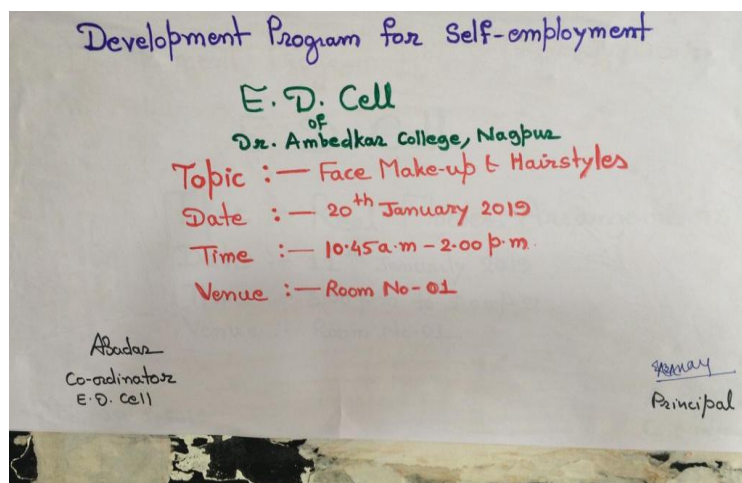 Development Program for Self-employment
E. D. Cell
of
Dr. Ambedkar College, Nagpur
Topic :— Face Make-up & Hairstyles
Date :— 20th January 2019
Time :— 10.45 a.m – 2.00 p.m.
Venue :— Room No-01
ABadar
Co-ordinator
E.D. Cell
Principal